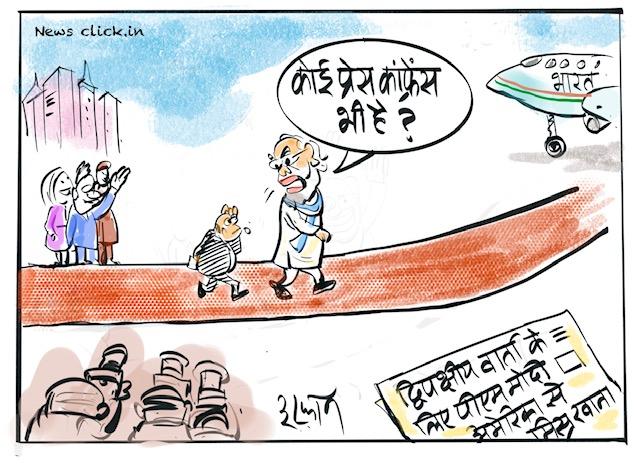 News click.in
कोई प्रेस कांफ्रेंस
भी है ?
भारत
द्विपक्षीय वार्ता के
लिए पीएम मोदी
अमेरिका से
मिस्र रवाना
इरफान